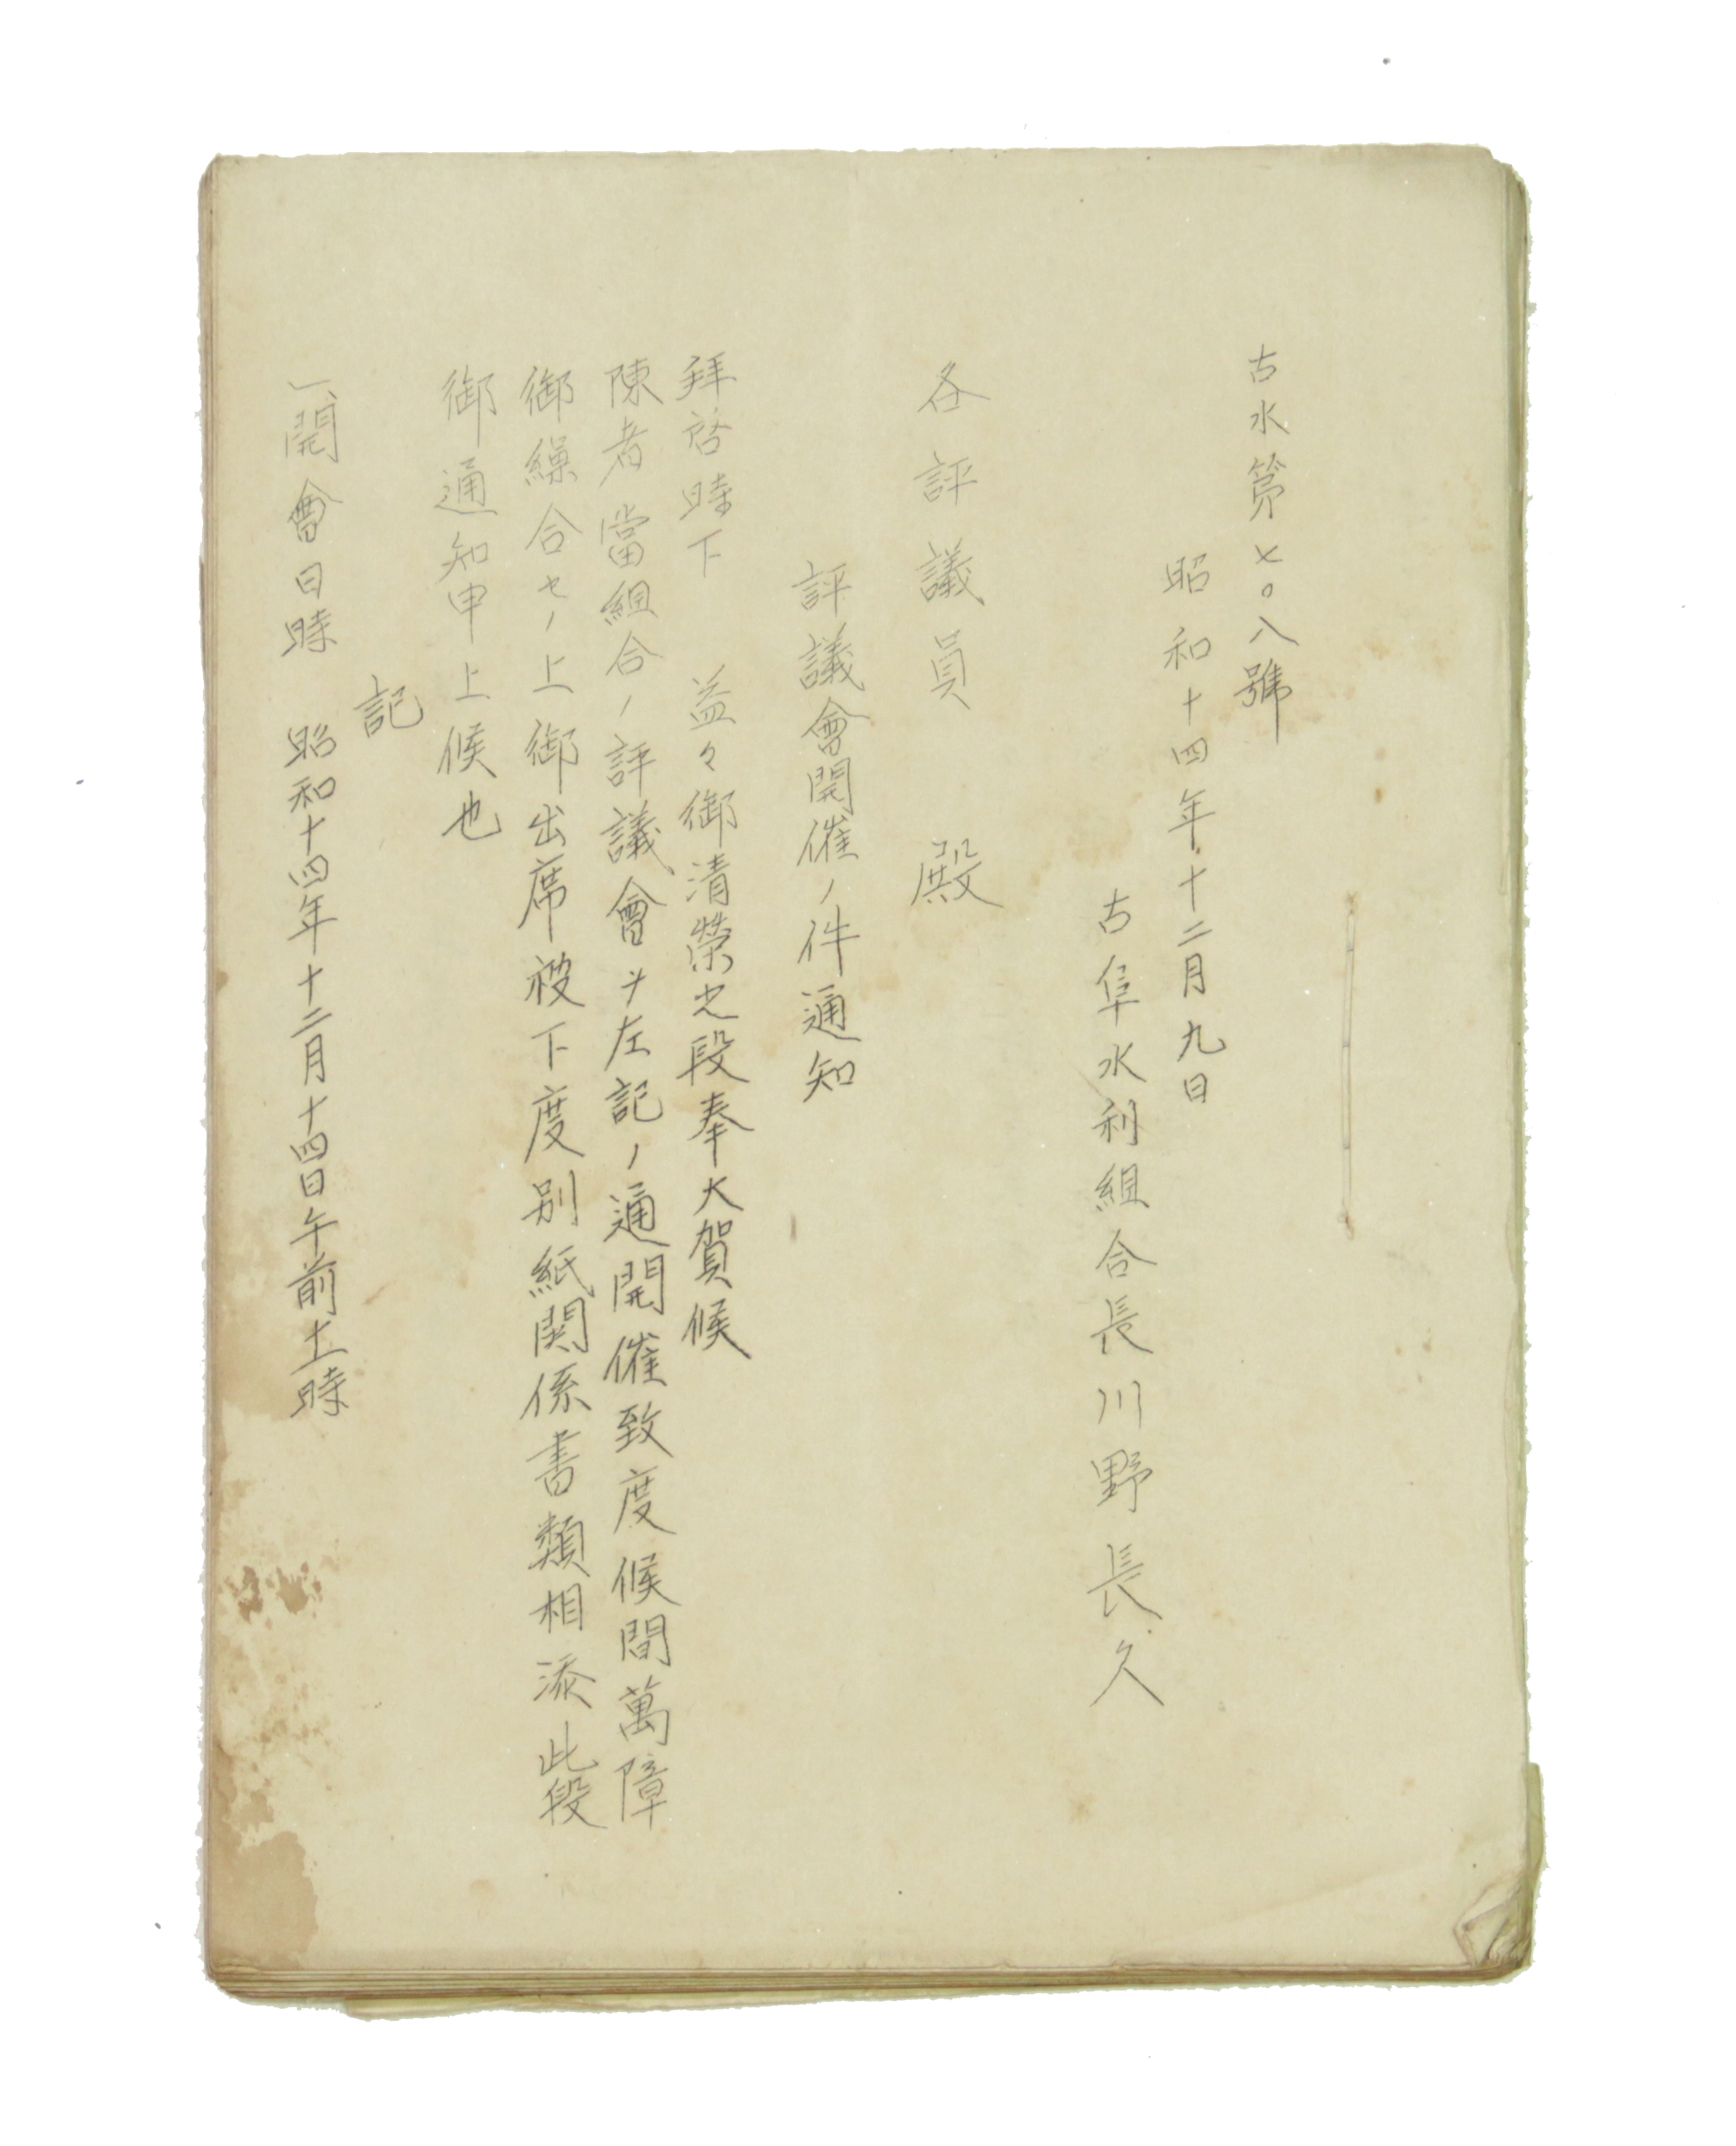 古水第七〇八號
昭和十四年十二月九日
古阜水利組合長川野長久
各評議員 殿
評議會開催ノ件通知
拜啓時下 益々御清榮之段奉大賀候
陳者當組合ノ評議會ヲ左記ノ通開催致度候間萬障
御繰合セノ上御出席被下度別紙関係書類相添此段
御通知申上候也
記
一、開會日時 昭和十四年十二月十四日午前十一時